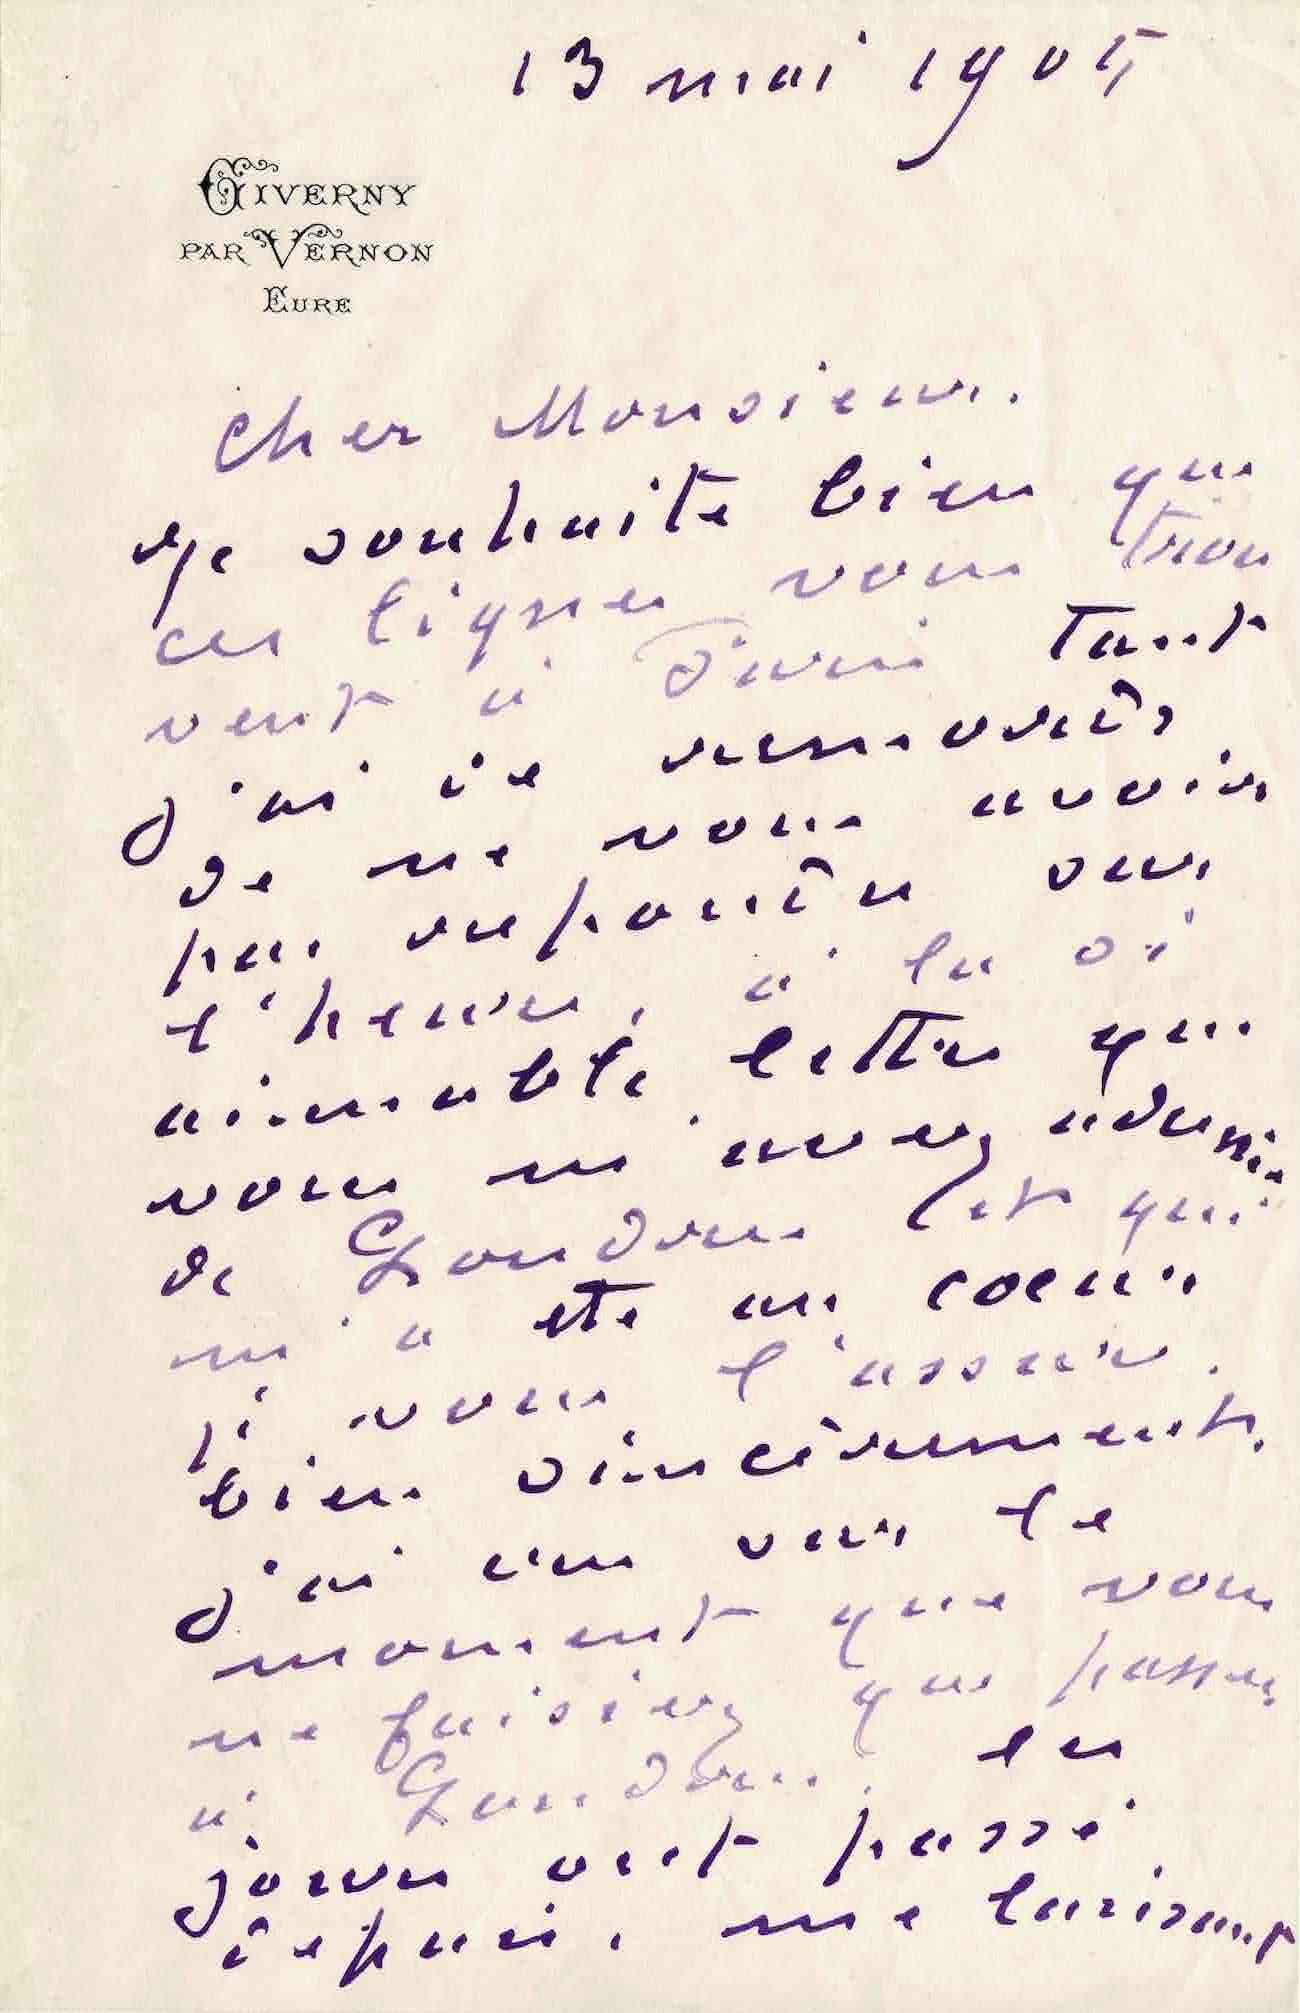 13 mai 1905
GIVERNY
PAR VERNON
EURE
Cher Monsieur.
Je souhaite bien que
ces lignes vous trou
vent à Paris tant
j'ai de remords
de ne vous avoir
pas répondu sur
l'heure, à la si
aimable lettre que
vous m'avez adressée
de Londres et qui
m'a été au coeur
je vous l'assure
bien sincèrement.
j'ai cru sur le
moment que vous
ne faisiez que passer
à Londres. les
jours ont passé
depuis, me laissant